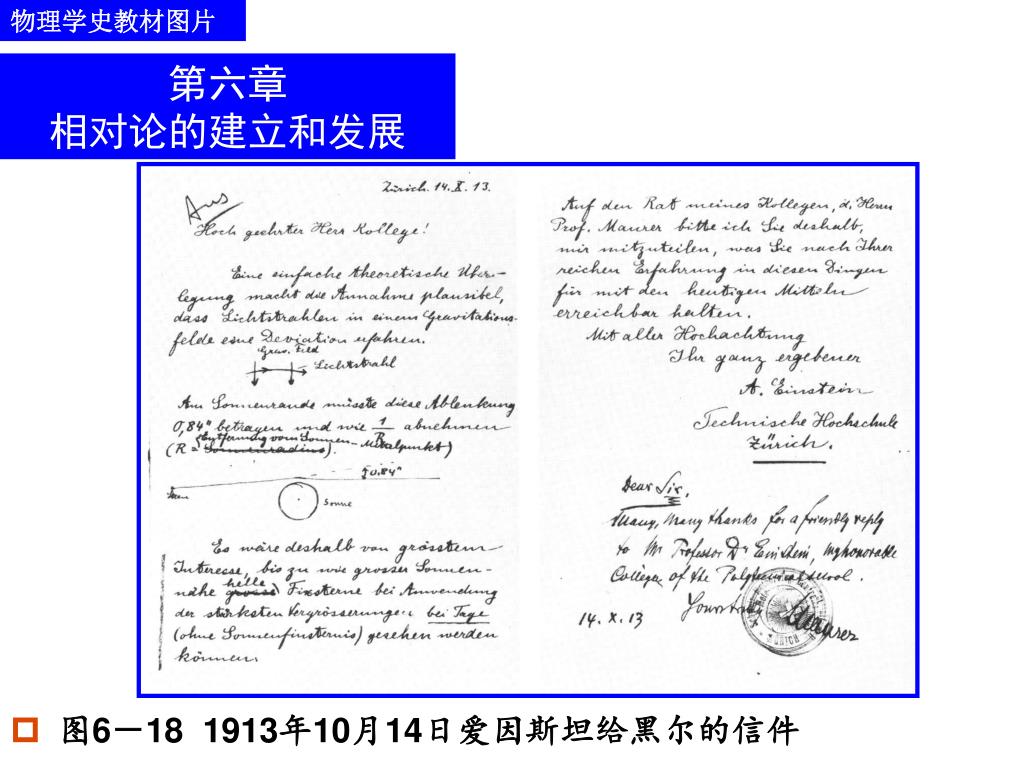 物理学史教材图片
第六章
相对论的建立和发展
Zürich. 14. X. 13.
Hoch geehrter Herr Kollege!
Eine einfache theoretische Über-
legung macht die Annahme plausibel,
dass Lichtstrahlen in einem Gravitations-
felde eine Deviation erfahren.
Grav. Feld
Lichtstrahl
Am Sonnenrande müsste diese Ablenkung
0,84" betragen und wie 1/R abnehmen
(R = Sonnenradius).
Entfernung vom Sonnen-Mittelpunkt)
0.84"
Sonne
Es wäre deshalb von grösstem
Interesse, bis zu wie grosser Sonnen-
nähe grosse helle Fixsterne bei Anwendung
der stärksten Vergrösserungen bei Tage
(ohne Sonnenfinsternis) gesehen werden
können.
Auf den Rat meines Kollegen, d. Herrn
Prof. Maurer bitte ich Sie deshalb,
mir mitzuteilen, was Sie nach Ihrer
reichen Erfahrung in diesen Dingen
für mit den heutigen Mitteln
erreichbar halten.
Mit aller Hochachtung
Ihr ganz ergebener
A. Einstein
Technische Hochschule
Zürich.
Dear Sir,
Many, many thanks for a friendly reply
to Mr Professor Dr Einstein, my honorable
Collegue of the Polytechnical school.
14. X. 13
Yours truly
Maurer
ZÜRICH
图6－18 1913年10月14日爱因斯坦给黑尔的信件